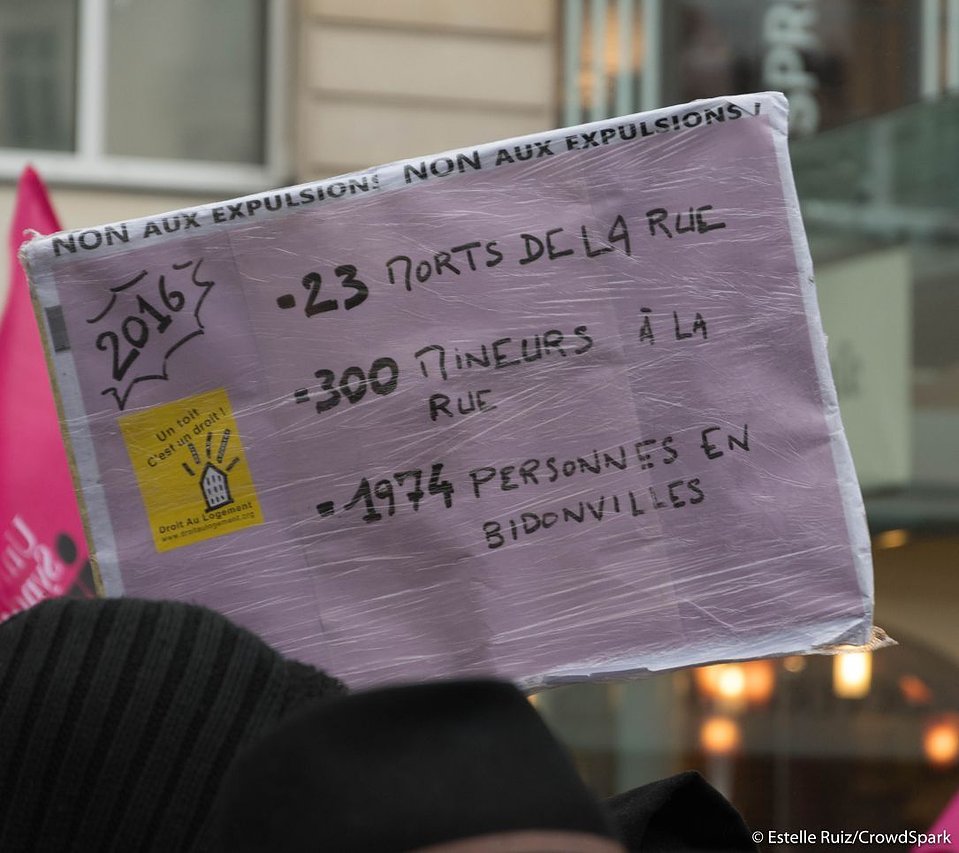 SPR
NON AUX EXPULSIONS NON AUX EXPULSIONS !
2016
-23 MORTS DE LA RUE
-300 MINEURS À LA
RUE
-1974 PERSONNES EN
BIDONVILLES
Un toit
C'est un droit !
Droit Au Logement
www.droitaulogement.org
© Estelle Ruiz/CrowdSpark